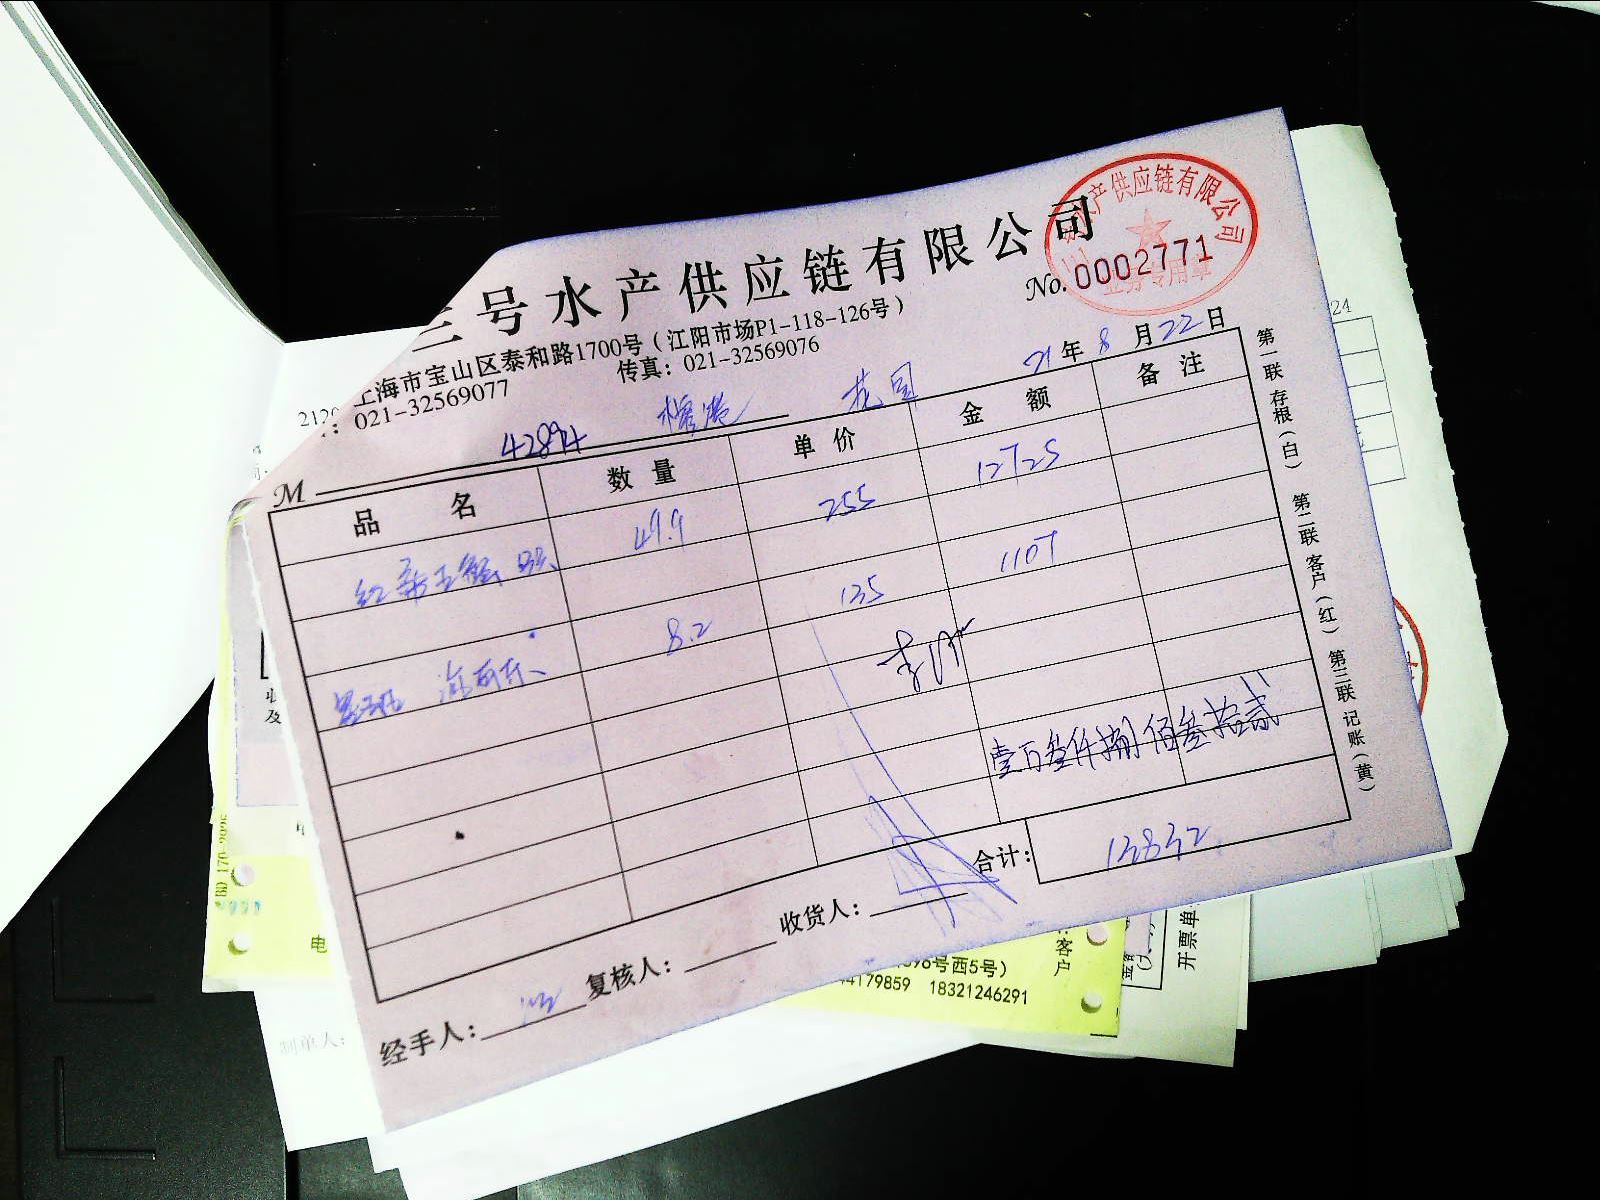 三号水产供应链有限公司
水产供应链有限公司
业务专用章
No. 0002771
上海市宝山区泰和路1700号(江阳市场P1-118-126号)
: 021-32569077 传真: 021-32569076
21年8月22日
42894 花园
M
品名 数量 单价 金额 备注
49.9 255 12725
8.2 135 1107
壹万叁仟捌佰叁拾贰
合计: 13832
经手人: 复核人: 收货人:
第一联存根(白) 第二联客户(红) 第三联记账(黄)
号西5号)
44179859 18321246291
客户
开票单
制单人:
电
24